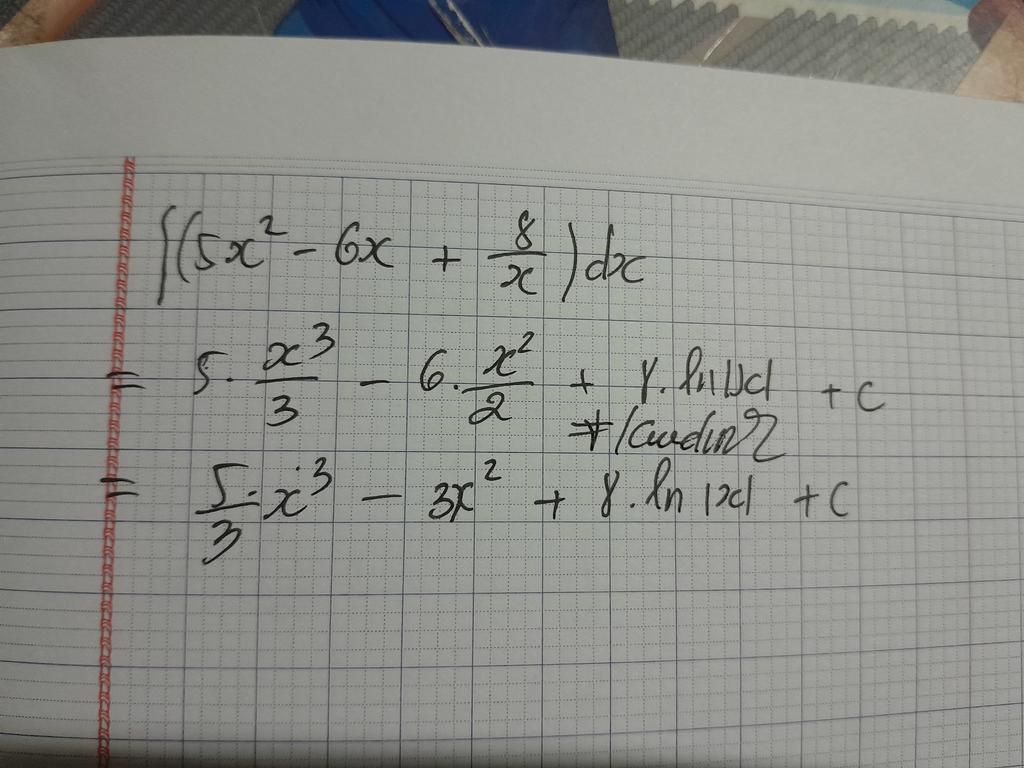 ∫(5x² - 6x + 8/x)dx
= 5. x³/3 - 6. x²/2 + 8. ln|x| + c
= 5/3 . x³ - 3x² + 8. ln |x| + c